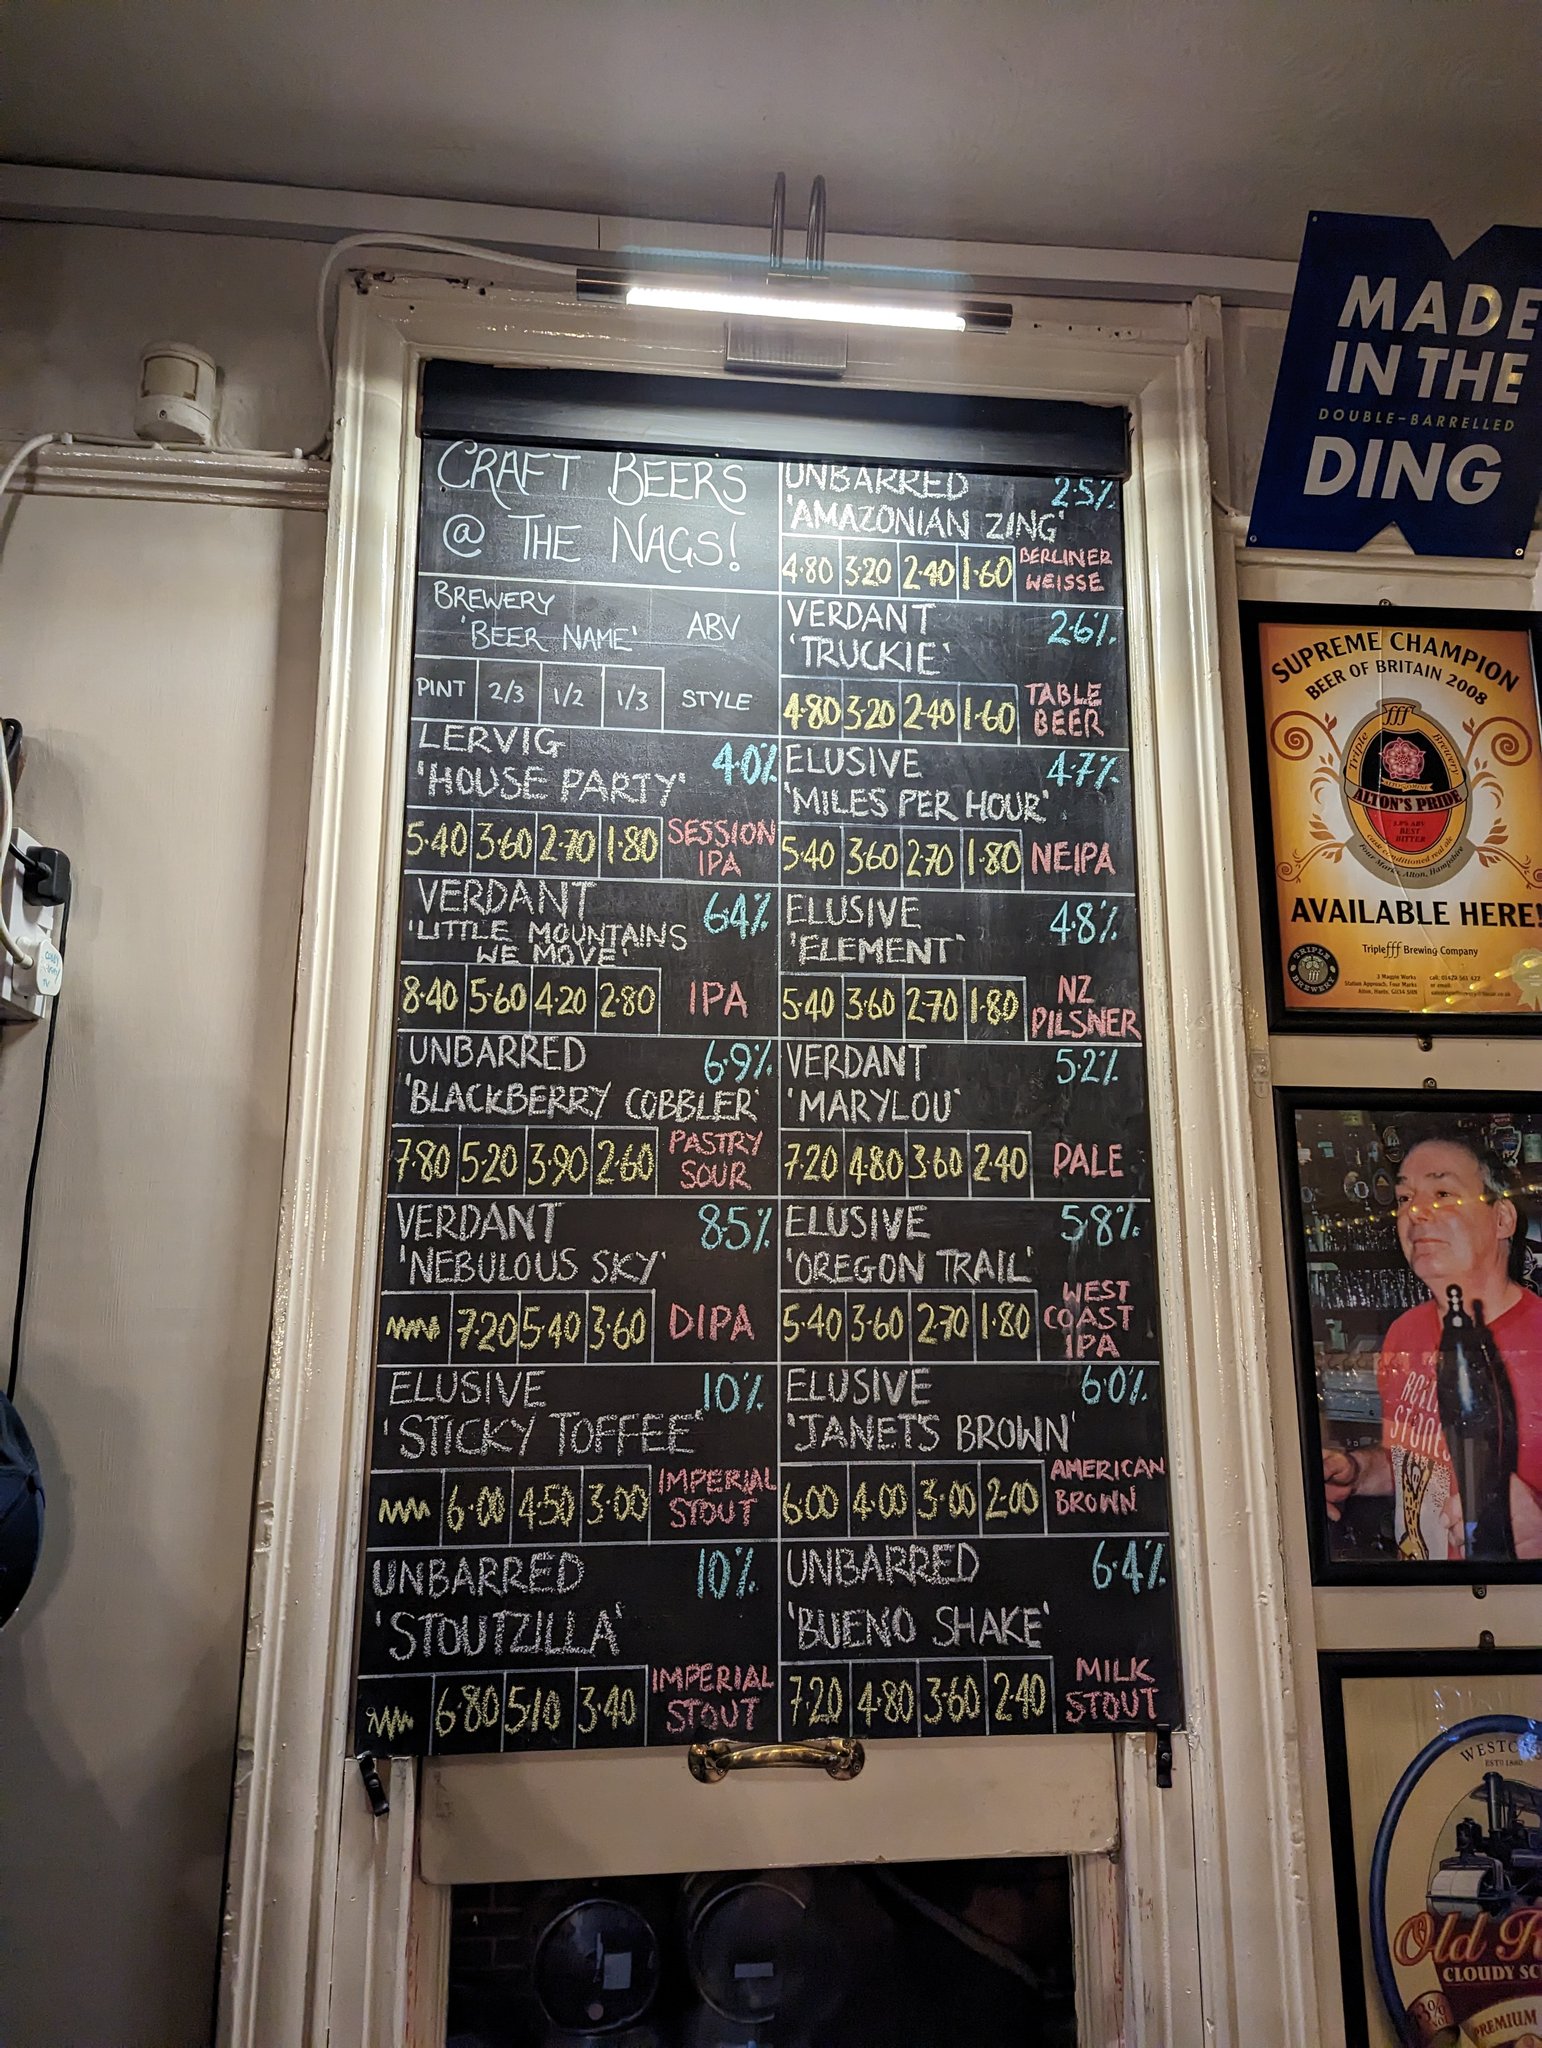 CRAFT BEERS
@ THE NAGS!
BREWERY
'BEER NAME' ABV
PINT 2/3 1/2 1/3 STYLE
LERVIG 4.0%
'HOUSE PARTY'
5.40 3.60 2.70 1.80 SESSION
IPA
VERDANT 6.4%
'LITTLE MOUNTAINS
WE MOVE'
8.40 5.60 4.20 2.80 IPA
UNBARRED 6.9%
'BLACKBERRY COBBLER'
7.80 5.20 3.90 2.60 PASTRY
SOUR
VERDANT 8.5%
'NEBULOUS SKY'
7.20 5.40 3.60 DIPA
ELUSIVE 10%
'STICKY TOFFEE'
6.00 4.50 3.00 IMPERIAL
STOUT
UNBARRED 10%
'STOUTZILLA'
6.80 5.10 3.40 IMPERIAL
STOUT
UNBARRED 2.5%
'AMAZONIAN ZING'
4.80 3.20 2.40 1.60 BERLINER
WEISSE
VERDANT 2.6%
'TRUCKIE'
4.80 3.20 2.40 1.60 TABLE
BEER
ELUSIVE 4.7%
'MILES PER HOUR'
5.40 3.60 2.70 1.80 NEIPA
ELUSIVE 4.8%
'ELEMENT'
5.40 3.60 2.70 1.80 NZ
PILSNER
VERDANT 5.2%
'MARYLOU'
7.20 4.80 3.60 2.40 PALE
ELUSIVE 5.8%
'OREGON TRAIL'
5.40 3.60 2.70 1.80 WEST
COAST
IPA
ELUSIVE 6.0%
'JANET'S BROWN'
6.00 4.00 3.00 2.00 AMERICAN
BROWN
UNBARRED 6.4%
'BUENO SHAKE'
7.20 4.80 3.60 2.40 MILK
STOUT
MADE
IN THE
DOUBLE-BARRELLED
DING
SUPREME CHAMPION
BEER OF BRITAIN 2008
fff
Triple Brewery
ALTON'S PRIDE
3.8% ABV
BEST
BITTER
Four Marks, Alton, Hampshire
AVAILABLE HERE!
Triple fff Brewing Company
TRIPLE
fff
BREWERY
3 Magpie Works
Station Approach, Four Marks
Alton, Hants, GU34 5HN
ROLLING
STONES
ESTD 1880
Old
CLOUDY
PREMIUM